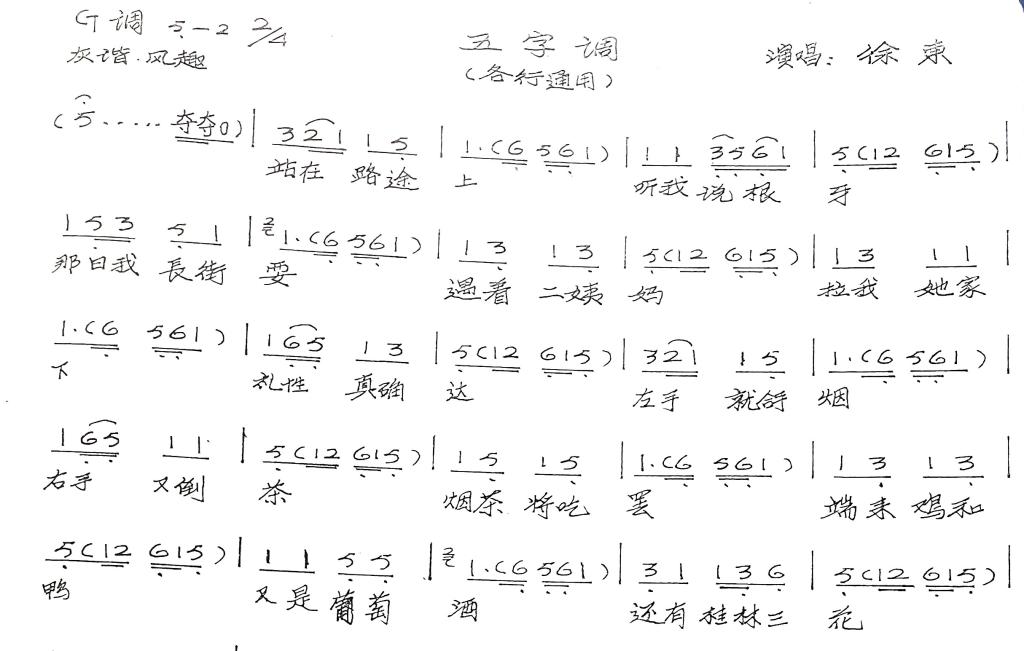 G调 5—2 2/4 五字调 演唱：徐東
灰谐.风趣 (各行通用)
(5...... 夸夸0) | 321 15 | 1.(6 561) | 11 3561 | 5(12 615) |
站在 路途 上 听我 说根 牙
153 51 | 2 1.(6 561) | 13 13 | 5(12 615) | 13 11 |
那日我 長街 耍 遇着 二姨 妈 拉我 她家
1.(6 561) | 165 13 | 5(12 615) | 321 15 | 1.(6 561)
下 礼性 真确 达 左手 就舒 烟
165 11 | 5(12 615) | 15 15 | 1.(6 561) | 13 13 |
右手 又倒 茶 烟茶 将吃 罢 端来 鸡和
5(12 615) | 11 55 | 2 1.(6 561) | 31 136 | 5(12 615) |
鸭 又是 葡萄 酒 还有 桂林三 花